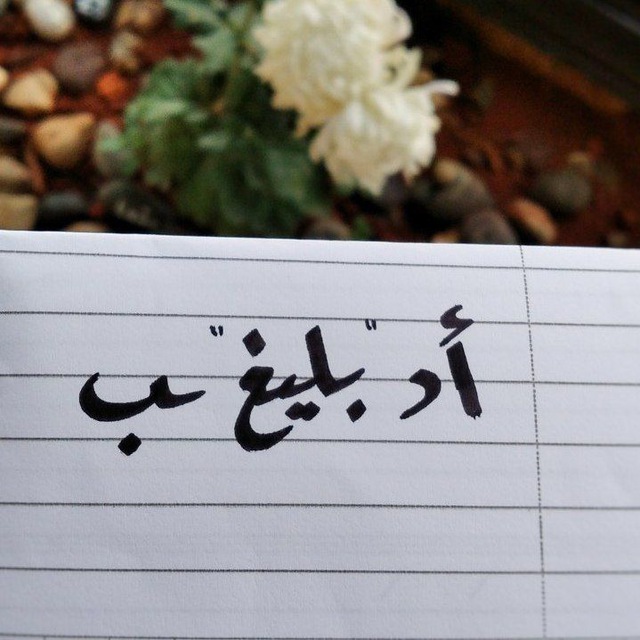 أد "بليغ" ـب